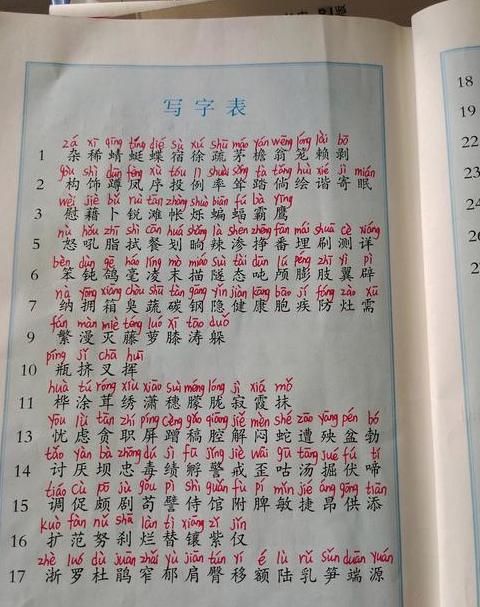 写字表
zá xī qīng tíng dié sù xú shū máo yán wēng lóng lài bō
1 杂稀蜻蜓蝶宿徐蔬茅檐翁笼赖剥
gòu shì dūn fèng xù tóu lì shuài sǒng tà tǎng huì xié jì mián
2 构饰蹲凤序投例率耸踏倘绘谐寄眠
wèi jiè bǔ ruì tān zhàng shuò biān fú bà yīng
3 慰藉卜锐滩帐烁蝙蝠霸鹰
nù hǒu zhī shì cān huá shǎng là shèn zhēng fān mái shuā cè xiáng
5 怒吼脂拭餐划晌辣渗挣番埋刷测详
bèn dùn gē háo líng mò miáo suì tài dūn lú péng zhī yì pì
6 笨钝鸽毫凌末描隧态吨颅膨肢翼辟
nà yōng xiāng chòu shū tàn gāng yǐn jiàn kāng bāo jí fáng zào xū
7 纳拥箱臭蔬碳钢隐健康胞疾防灶需
fán màn miè téng luó xī tāo duǒ
9 繁漫灭藤萝膝涛躲
píng jǐ chā huī
10 瓶挤叉挥
huà tú róng xiù xiāo suì méng lóng jì xiá mǒ
11 桦涂茸绣潇穗朦胧寂霞抹
yōu lǜ tān zhí píng cèng gǎo qiāng jiě mèn shé zāo yāng pén bó
13 忧虑贪职屏蹭稿腔解闷蛇遭殃盆勃
tǎo yàn bà zhōng dú jì fū jǐng jiè wāi gū tāng jué fú tí
14 讨厌坝忠毒绩孵警戒歪咕汤掘伏啼
tiáo cù pō jù gǒu pì shì guǎn fù pí mǐn jié áng gōng tiān
15 调促颇剧苟譬侍馆附脾敏捷昂供添
kuò fàn nǔ shā làn tì xiāng zǐ jǐn
16 扩范努刹烂替镶紫仅
zhè luó dù juān zhǎi yù jiān tún yí é lù rǔ sǔn duān yuán
17 浙罗杜鹃窄郁肩臀移额陆乳笋端源
18
19
22
23
24